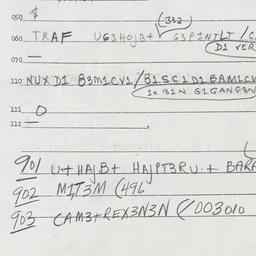 050 $
(332
060 TRAF UG3HOJB+ G3PINTLT /C
(D1 VER
070 —
110 NUX D1 B3M1CV1/B1SC1D1 BAM1CV
(1X B1N G1GANG3N
111 O
112 —
901 U+HAJB+ HAJPT3RU.+ BARA
902 MIT3M (496
903 CAM3+REX3N3N (/003010